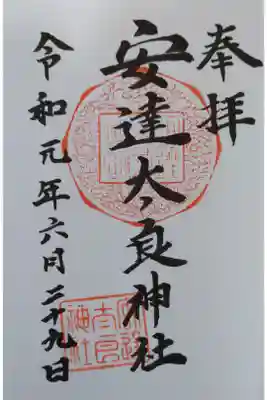 奉拝
安達太良神社
令和元年六月二十九日